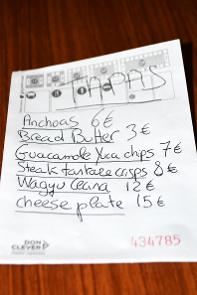 TAPAS
Anchoas 6€
Bread Butter 3€
Guacamole Yuca chips 7€
Steak tartare crisps 8€
Wagyu Ceana 12€
cheese plate 15€
DON
CLEVER
434785